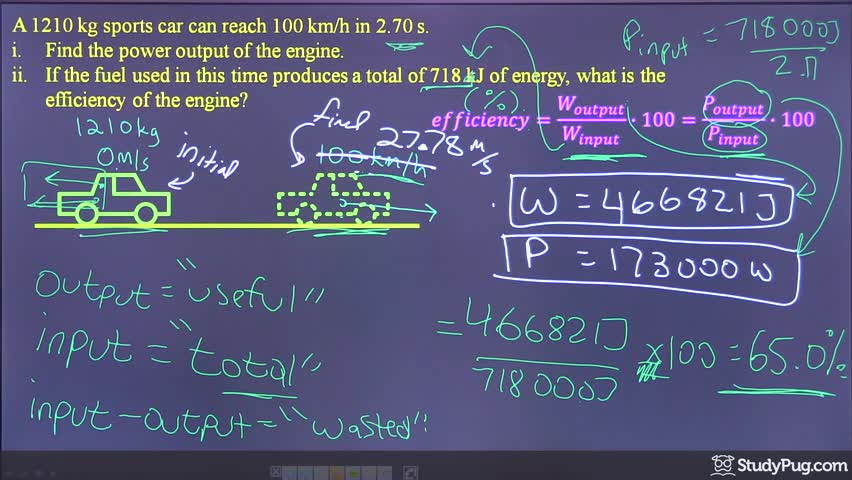 A 1210 kg sports car can reach 100 km/h in 2.70 s.
i. Find the power output of the engine.
ii. If the fuel used in this time produces a total of 718 kJ of energy, what is the
efficiency of the engine?
P input = 718000J / 2.7
(%)
efficiency = W_output / W_input · 100 = P_output / P_input · 100
1210kg
0m/s
initial
final
27.78 m/s
100 km/h
W = 466821J
P = 173000W
output = "useful"
input = "total"
input - output = "wasted"
= 466821J / 718000J × 100 = 65.0%
StudyPug.com